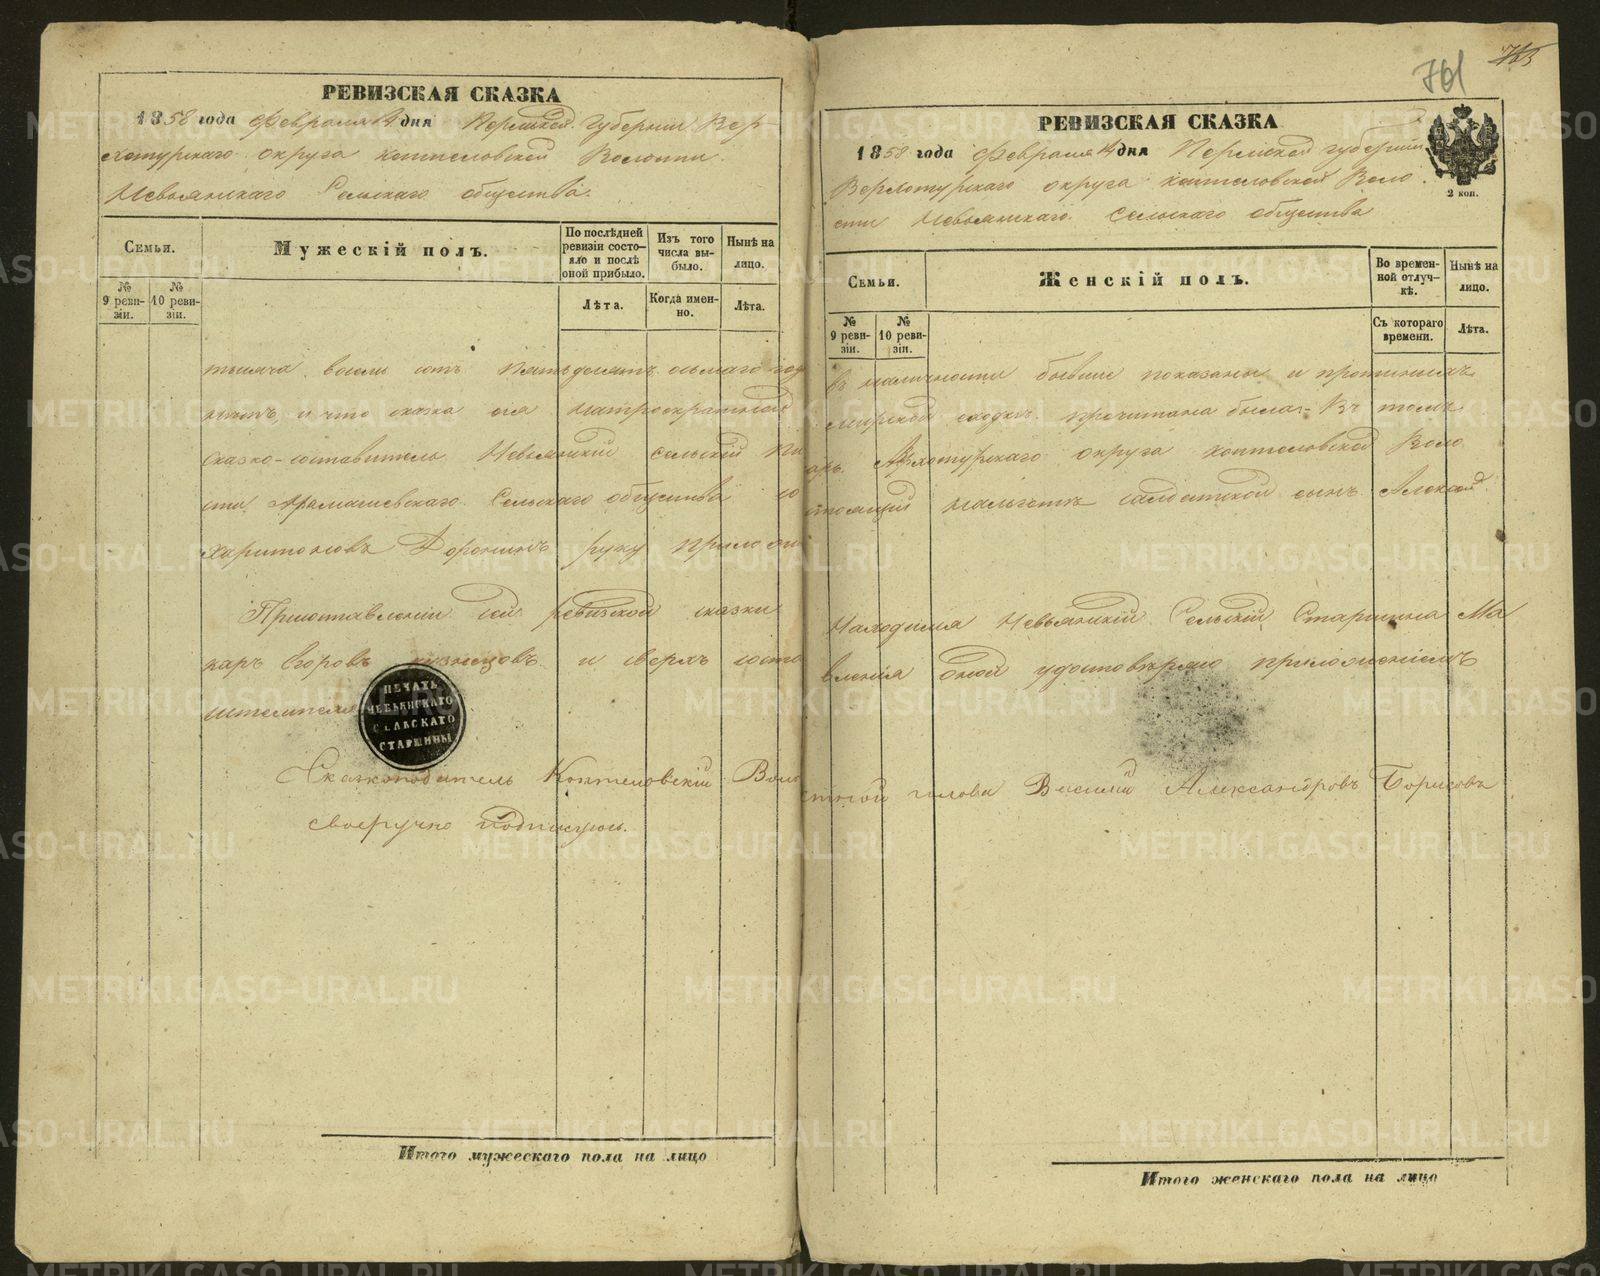 РЕВИЗСКАЯ СКАЗКА
1858 года Февраля 14 дня Пермской губернии Вер-
хотурскаго округа Коптеловской Волости
Невьянскаго Сельскаго общества.
Семьи.
Мужескій полъ.
По послѣдней ревизіи состояло и послѣ оной прибыло.
Изъ того числа выбыло.
Нынѣ на лицо.
№ 9 ревизіи.
№ 10 ревизіи.
Лѣта.
Когда именно.
Лѣта.
тысяча восемь сотъ пятьдесятъ осьмаго год
и что сказка сія
сказко-составитель Невьянскій сельскій Пи
сти Арамашевскаго Сельскаго общества со
Харитоновъ Доронинъ руку приложи
При составленіи сей ревизской сказки
каръ Егоровъ Кузнецовъ и сверхъ соста
штемпеля
ПЕЧАТЬ
НЕВЬЯНСКАГО
СЕЛЬСКАГО
СТАРШИНЫ
Сказкоподатель Коптеловскій Воло
своеручно подписуюсь.
Итого мужескаго пола на лицо
761
РЕВИЗСКАЯ СКАЗКА
1858 года Февраля 14 дня Пермской губерніи
Верхотурскаго округа Коптеловской Воло
сти Невьянскаго Сельскаго общества
2 коп.
Семьи.
Женскій полъ.
Во временной отлучкѣ.
Нынѣ на лицо.
№ 9 ревизіи.
№ 10 ревизіи.
Съ котораго времени.
Лѣта.
въ наличности бывшіе показаны и
мирской сходкѣ прочитана была въ томъ
арь Верхотурскаго округа Коптеловской Воло
стоящій солдатской сынъ Александ
Находился Невьянскій Сельскій Старшина Ма
вленія оной удостовѣряю приложеніемъ
стной голова Василий Александровъ Борисовъ
Итого женскаго пола на лицо
METRIKI.GASO-URAL.RU